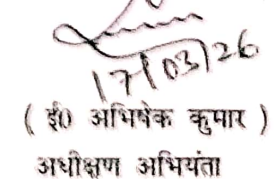 17/03/26
( ई0 अभिषेक कुमार )
अधीक्षण अभियंता